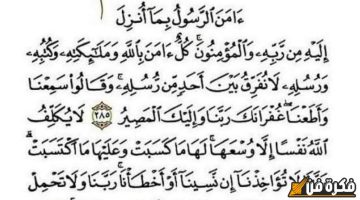 ءَامَنَ ٱلرَّسُولُ بِمَآ أُنزِلَ
إِلَيْهِ مِن رَّبِّهِۦ وَٱلْمُؤْمِنُونَۚ كُلٌّ ءَامَنَ بِٱللَّهِ وَمَلَـٰٓئِكَتِهِۦ وَكُتُبِهِۦ
وَرُسُلِهِۦ لَا نُفَرِّقُ بَيْنَ أَحَدٍ مِّن رُّسُلِهِۦۚ وَقَالُوا۟ سَمِعْنَا
وَأَطَعْنَاۖ غُفْرَانَكَ رَبَّنَا وَإِلَيْكَ ٱلْمَصِيرُ ٢٨٥ لَا يُكَلِّفُ
ٱللَّهُ نَفْسًا إِلَّا وُسْعَهَاۚ لَهَا مَا كَسَبَتْ وَعَلَيْهَا مَا ٱكْتَسَبَتْۗ
لَا تُؤَاخِذْنَآ إِن نَّسِينَآ أَوْ أَخْطَأْنَاۚ رَبَّنَا وَلَا تَحْمِلْ
فكرة فن